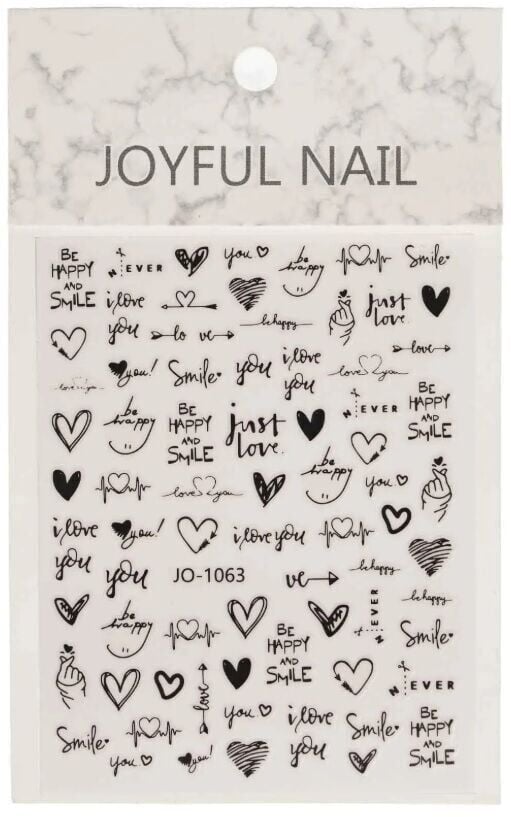 JOYFUL NAIL
BE
HAPPY
AND
SMILE
NEVER
you
be
happy
Smile
i love
you
just
love.
lo ve
be happy
love
you!
Smile
you
i love
you
love you
love you
be
happy
BE
HAPPY
AND
SMILE
just
love.
NEVER
BE
HAPPY
AND
SMILE
be
happy
love you
you
i love
you
you!
i love you
you
JO-1063
ve
be happy
be happy
be
happy
BE
HAPPY
AND
SMILE
NEVER
Smile
love
NEVER
Smile
you
you
i love
you
you!
Smile
BE
HAPPY
AND
SMILE